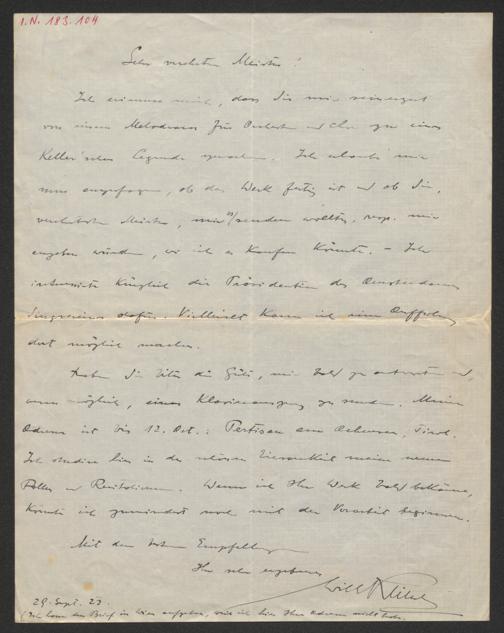 I.N. 183.104
Sehr verehrter Meister!
Ich erinnere mich, dass Sie mir seinerzeit
von einem Melodram für Orchester und Chor zu einer
Keller'schen Legende sprachen. Ich erlaube mir
nun anzufragen, ob das Werk fertig ist und ob Sie,
verehrter Meister, mir es senden wollten, resp. mir
angeben würden, wo ich es kaufen könnte. – Ich
interessierte kürzlich die Präsidentin des Amsterdamer
Singvereins dafür. Vielleicht kann ich eine Aufführung
dort möglich machen.
Haben Sie bitte die Güte, mir bald zu antworten und,
wenn möglich, einen Klavierauszug zu senden. Meine
Adresse ist bis 12. Oct.: Pertisau am Achensee, Tirol.
Ich studiere hier in der Einsamkeit meine neuen
Rollen und Recitationen. Wenn ich Ihr Werk bald bekäme,
könnte ich zumindest noch mit der Vorarbeit beginnen.
Mit den besten Empfehlungen
Ihr sehr ergebener
29. Sept. 23.
(Ich kann den Brief in Wien aufgeben, weil ich hier Ihre Adresse nicht habe.